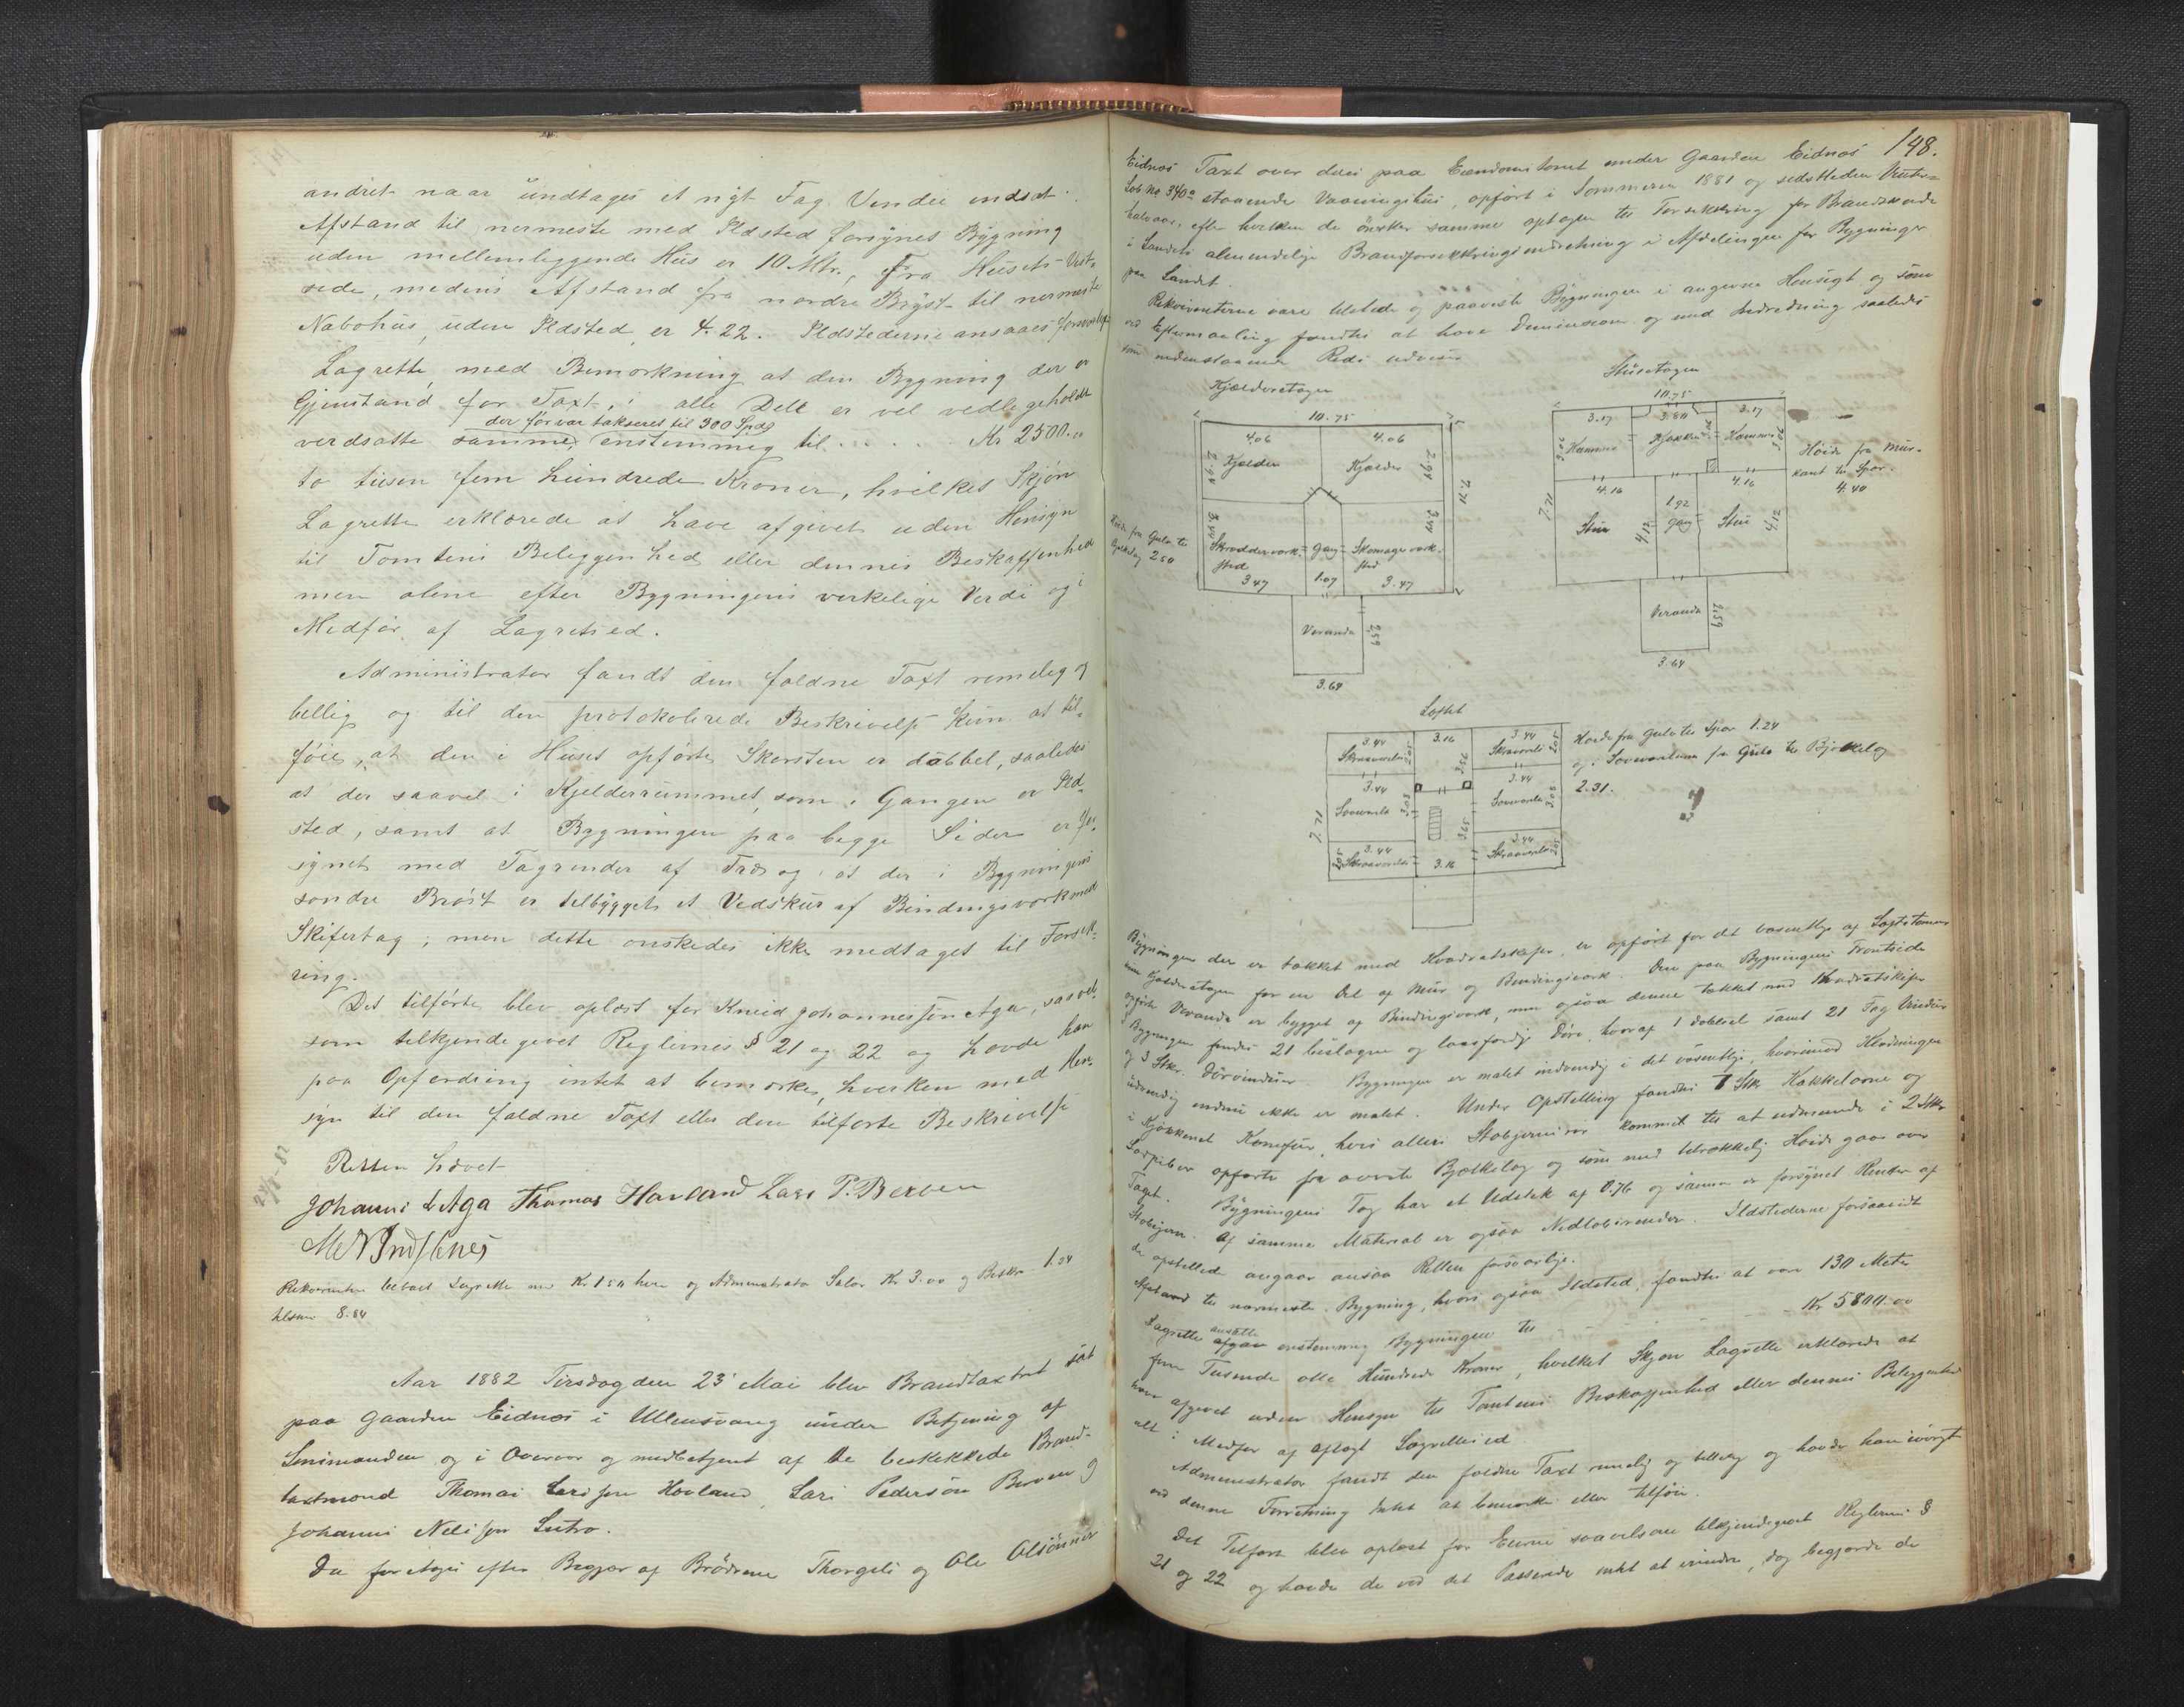 andret naar undtages et nyt Fag Vendue indsat.
Afstand til nermeste med Ildsted forsynet Bygning
uden mellemliggende Hus er 10 Mtr., Fra Husets Vest-
side, medens Afstand fra nordre Bryst til nermeste
Nabohus, uden Ildsted, er 4.22. Ildstederne ansaaes forsvarlige
Lagrette, med Bemerkning at den Bygning der er
Gjenstand for Taxt, i alle Dele er vel vedligeholdt
der før var takseret til 300 Spdl
verdsatte samme enstemmig til . . . . . Kr 2500.00
to tusen fem hundrede Kroner, hvilket Skjøn
Lagrette erklærede at have afgivet uden Hensyn
til Tomtens Beleggenhed eller dennes Beskaffenhed
men alene efter Bygningens verkelige Verdi og i
Medfør af Lagretsed.
Administrator fandt den faldne Taxt remelig og
billig og til den protokolerede Beskrivelse kun at til-
føie, at den i Huset opførte Skorsten er dobbel, saaledes
at der saavel i Kjelderrummet som i Gangen er Ild-
sted, samt at Bygningen paa begge Sider er for-
synet med Tagrender af Træ og at der i Bygningens
sondre Brøst er tilbygget et Vedskur af Bindingsverk med
Skifertag; men dette onskedes ikke medtaget til Forsik-
ring.
Det tilførte blev oplæst for Kneid Johannessøn Aga, saavel
som tilkjendegivet Reglernes § 21 og 22 og havde han
paa Opfordring intet at bemerke, hverken med Hen-
syn til den faldne Taxt eller den tilførte Beskrivelse
Retten hævet
24/5 82
Johannes L Aga Thomas Havland Lars P. Berven
Rekvirenten betalt Lagrette med Kr 1.50 hver og Administrator Salær Kr 3.00 og Beskr 1.34
tilsam 8.84
Aar 1882 Tirsdag den 23' Mai blev Brandtaxtret sat
paa Gaarden Eidnes i Ullensvang under Betjening af
Lensmanden og i Overvær og medbetjent af de beskikkede Brand-
taxtmænd Thomas Larssen Havland, Lars Pedersøn Berven og
Johannes Nelssen Lutro.
Da foretages efter Begjær af Brødrene Thorgels og Ole Olsønner
148.
Eidnes Taxt over deres paa Eiendomstomt under Gaarden Eidnes
Løb No 340a staaende Vaaningshus, opført i Sommeren 1881 og sidstleden Vinter-
halvaar, efter hvilken de ønsker samme optagen til Forsikring for Brandskade
i Landets almindelige Brandforsikkringsindretning i Afdelingen for Bygninger
paa Landet.
Rekvirenterne vare tilstede og paaviste Bygningen i angivne Hensigt og som
ved Eftermaaling fandtes at have Demension og med Indretning saaledes
som nedenstaaende Rids udviser
Kjælderetagen
10.75
4.06 4.06
2.94 Kjelder Kjælder 2.94
7.71
3.44 3.44
Skrædderverk- Gang Skomagerverk-
sted sted
3.47 1.07 3.47
Veranda 2.59
3.64
Høide fra Gulv til
Bjelkelag 2.50
Stueetagen
10.75
3.17 3.80 3.17
Kammer Kjøkken Kammer
4.16 4.16
1.92
7.71
Stue 4.12 Gang Stue 4.12
Veranda 2.59
3.64
Høide fra Mur-
kant til Spær.
4.40
Loftet
3.44 3.16 3.44
Skraaværelse Skraaværelse
3.44 3.44
Soveværelse 3.08 Soveværelse 3.08
7.71
3.44 3.44
Skraaværelse 3.16 Skraaværelse
Høide fra Gulv til Spær 1.24
og i Soveværelserne fra Gulv til Bjelkelag
2.31.
Bygningen der er tækket med Kvadratskifer, er opført for det væsentlige af Laftetømmer
men Kjælderetagen for en Del af Mur og Bindingsverk. Den paa Bygningens Frontside
opførte Veranda er bygget af Bindingsverk, men ogsaa denne tækket med Kvadratskifer
I Bygningen findes 21 beslagne og laasfærdige Døre, hvoraf 1 dobbel samt 21 Fag Vinduer
og 3 Stkr. Dørvinduer. Bygningen er malet indvendig i det væsentlige, hvorimod Klædningen
udvendig endnu ikke er malet. Under Opstilling fandtes 7 Stk Kakkelovne og
i Kjøkkenet Komfur, hvis alles Støbejernsrør kommer til at udmunde i 2 Stkr
Lærpiber opførte fra øverste Bjelkelag og som med tilrækkelig Høide gaar over
Taget.
Bygningens Tag har et Udstik af 0.76 og samme er forsynet Render af
Støbejern. Af samme Material er ogsaa Nedløbsrender. Ildstederne forsaavidt
de opstillede angaar ansaa Retten forsvarlige.
Afstand til nærmeste Bygning, hvori ogsaa Ildsted, fandtes at være 130 Meter
Lagrette ansatte enstemmig Bygningen til - - - Kr 5800.00
fem Tusende otte Hundrede Kroner, hvilket Skjøn Lagrette erklærede at
have afgivet uden Hensyn til Tomtens Beskaffenhed eller dennes Beliggenhed
alt i Medfør af aflagt Lagrettesed
Administrator fandt den faldne Taxt rimelig og billig og havde han iøvrigt
ved denne Forretning Intet at bemerke eller tilføie.
Det Tilførte blev oplæst for Eierne saavelsom tilkjendegivet Reglernes §
21 og 22 og havde de ved det Passerede intet at erindre, dog begjærde de